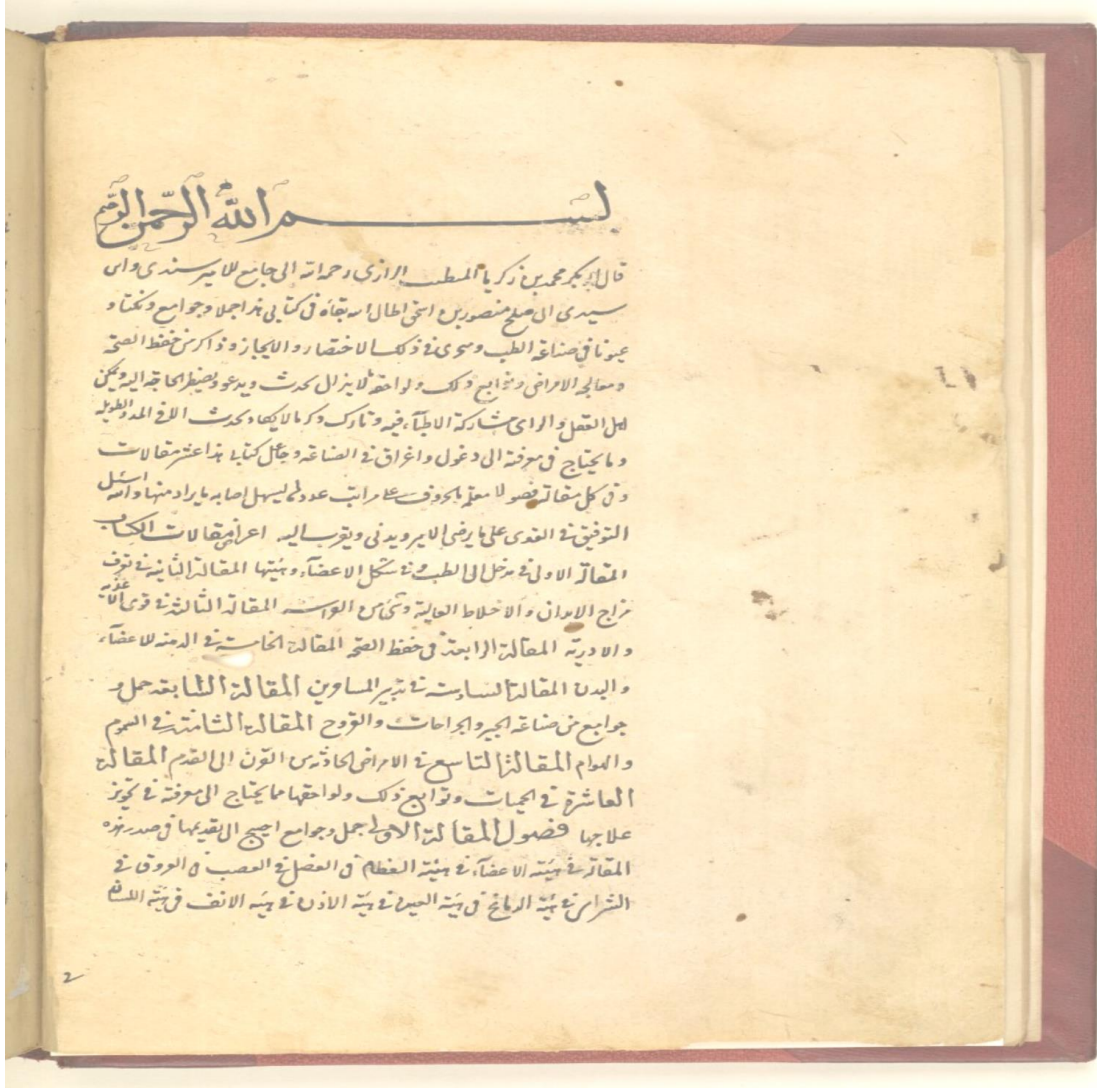 بسم الله الرحمن الرحيم
قال ابو بكر محمد بن زكريا المتطبب الرازى رحمه الله انى جامع للامير سندى وابن
سيدى ابى صالح منصور بن اسحق اطال الله بقاه فى كتابى هذا جملا وجوامع ونكتا و
عيونا فى صناعة الطب ومتحرى فى ذلك الاختصار والايجاز وذاكر من حفظ الصحة
ومعالجة الامراض وتوابع ذلك ولواحقه لا يزال يحدث ويدعو ويضطر الحاجة اليه ويمكن
اهل العقل والراى مشاركة الاطباء فيه وتارك ذكر ما لا يكاد يحدث الا فى المدد الطويلة
وما يحتاج فى معرفته الى دغول واغراق فى الصناعة وجاعل كتابى هذا عشر مقالات
وفى كل مقالة فصولا معلمة بالحروف على مراتب عددها ليسهل اصابة ما يراد منها والله اسئل
التوفيق فى القوى على ما يرضى الامير ويدنى ويقرب اليه اغراض مقالات الكتاب
المقالة الاولى فى مدخل الى الطب وفى شكل الاعضاء وهيئتها المقالة الثانية فى تعرف
مزاج الابدان والاخلاط الغالبة المقالة الثالثة فى قوى الاغذية
والادوية المقالة الرابعة فى حفظ الصحة المقالة الخامسة فى الدمنه للاعضاء
والبدن المقالة السادسة فى تدبير المسافرين المقالة السابعة جمل و
جوامع من صناعة الجبر والجراحات والقروح المقالة الثامنة فى السموم
والهوام المقالة التاسع فى الامراض الحادثة من القرن الى القدم المقالة
العاشرة فى الحميات وتوابع ذلك ولواحقها مما يحتاج الى معرفته فى تجويز
علاجها فصول المقالة الاولى جمل وجوامع احتيج الى تقديمها فى صدر هذه
المقالة فى هيئة الاعضاء فى هيئة العظام فى العضل فى العصب فى العروق فى
الشرايين فى هيئة الدماغ فى هيئة العين فى هيئة الاذن فى هيئة الانف فى هيئة اللسان
2